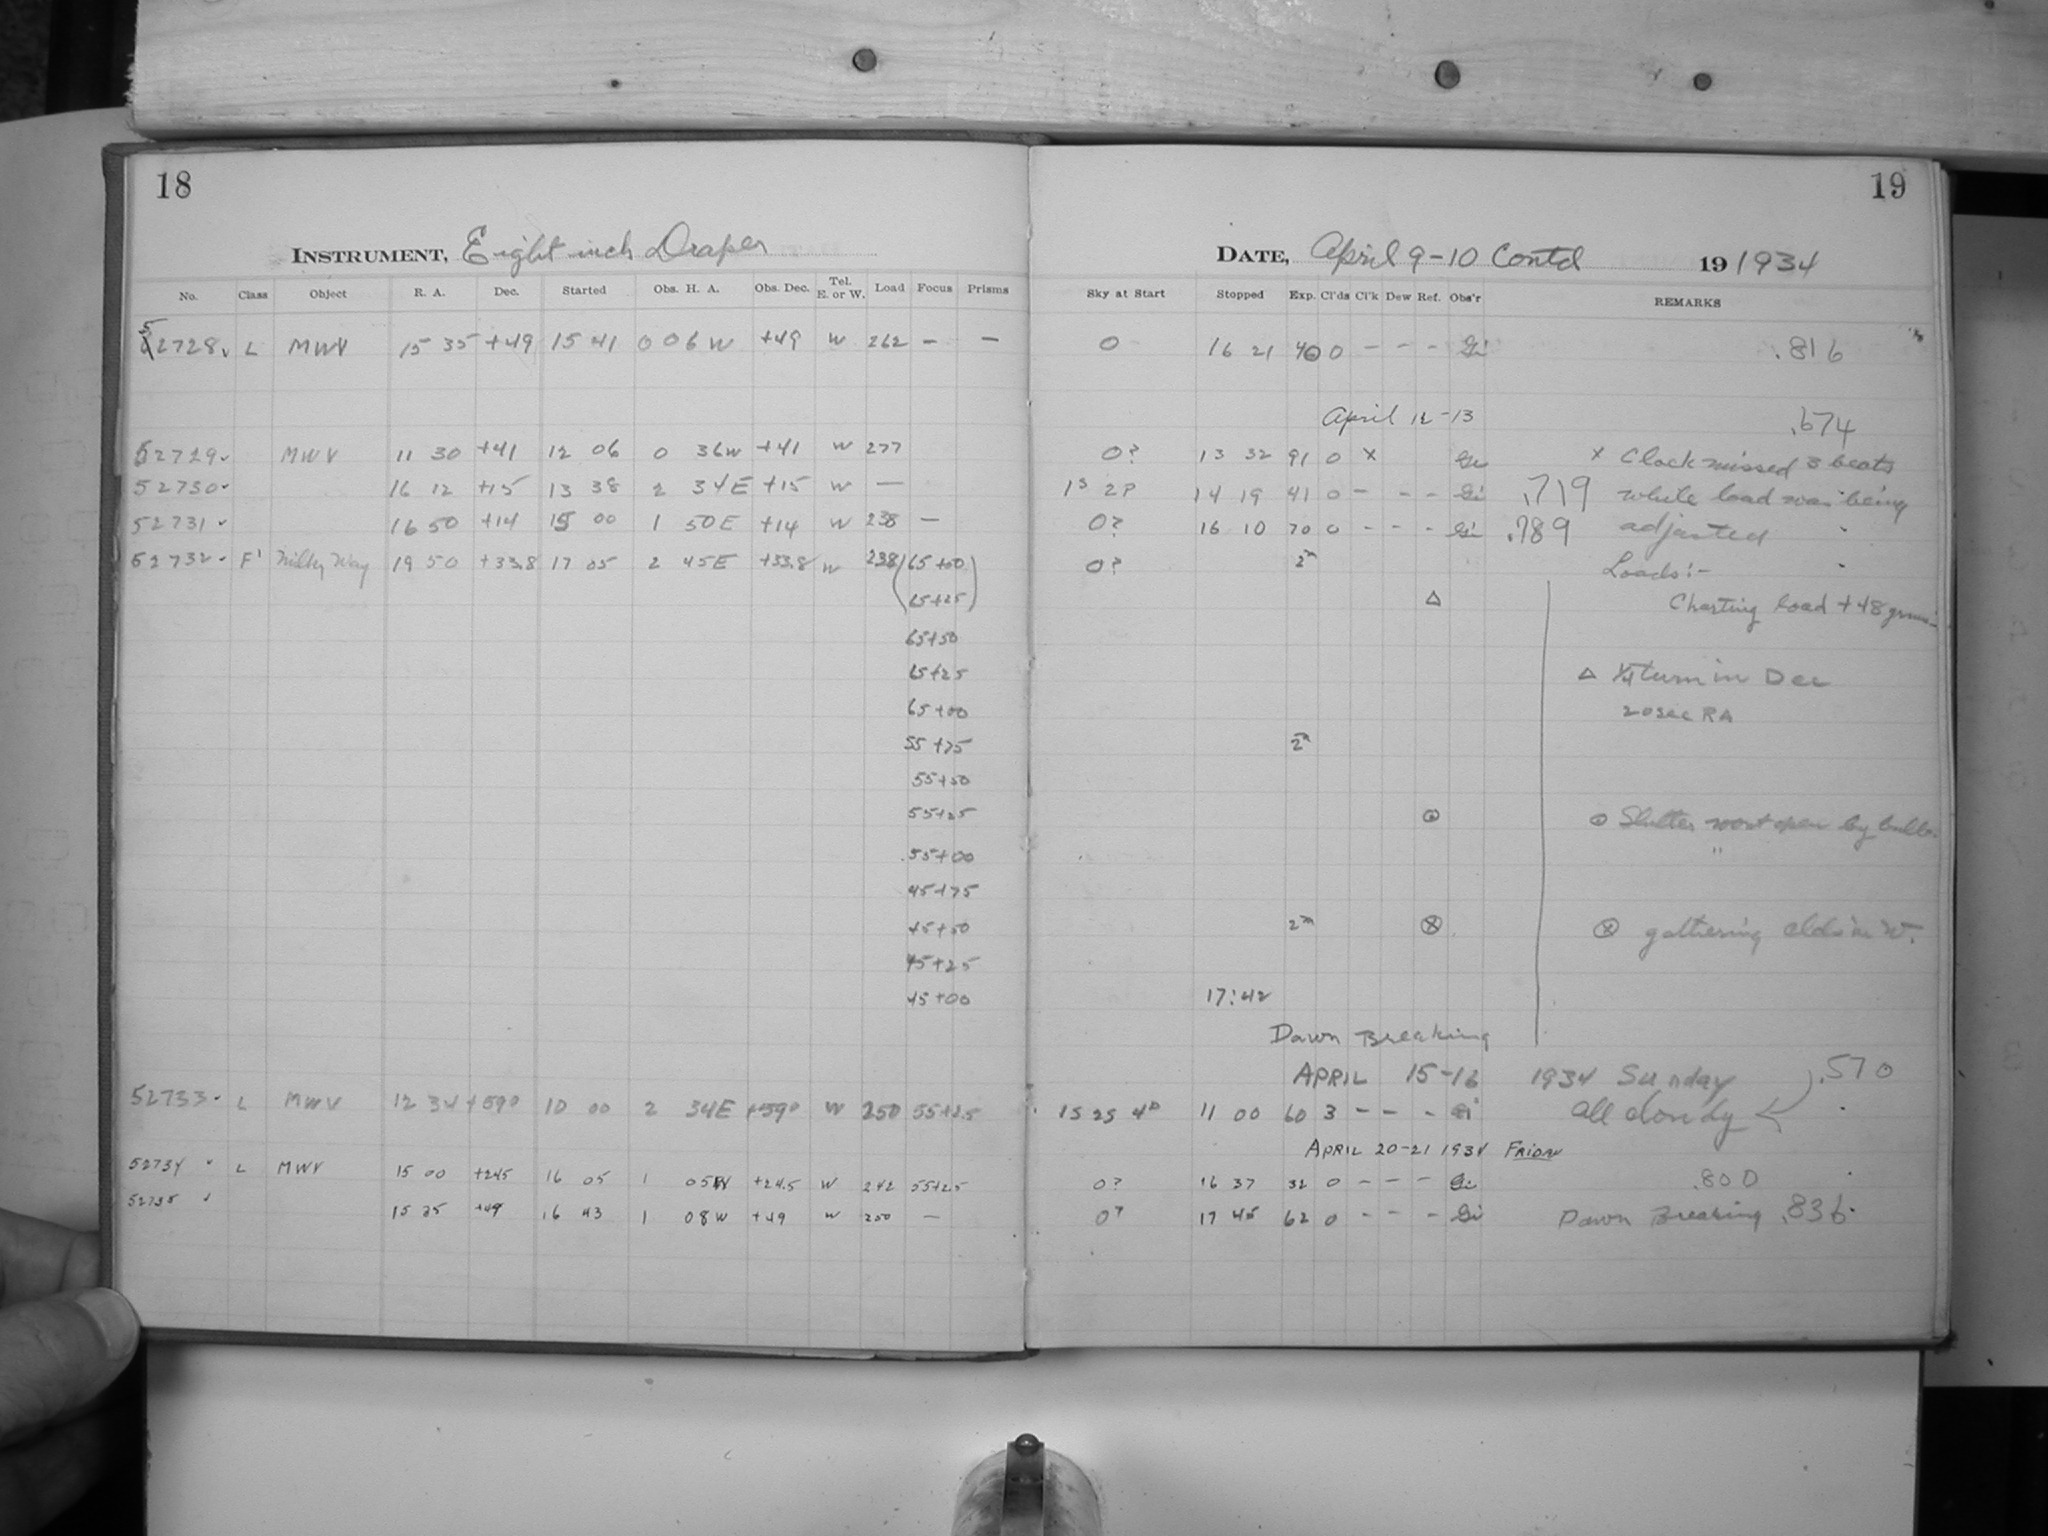 18
INSTRUMENT, Eight inch Draper
No. Class Object R. A. Dec. Started Obs. H. A. Obs. Dec. Tel. E. or W. Load Focus Prisms
52728 L MWV 15 35 +49 15 41 0 06 W +49 W 262 — —
52729 MWV 11 30 +41 12 06 0 36W +41 W 277
52730 16 12 +15 13 38 2 34E +15 W —
52731 16 50 +14 15 00 1 50E +14 W 238 —
52732 F' Milky Way 19 50 +33.8 17 05 2 45E +33.8 W 238 (65+00)
(65+25)
65+50
65+25
65+00
55+75
55+50
55+25
55+00
45+75
45+50
45+25
45+00
52733 L MWV 12 34 +59° 10 00 2 34E +59° W 250 55+25
52734 L MWV 15 00 +245 16 05 1 05W +24.5 W 242 55+25
52735 15 35 +49 16 43 1 08W +49 W 250 —
19
DATE, April 9-10 Contd 19 1934
Sky at Start Stopped Exp. Cl'ds Cl'k Dew Ref. Obs'r REMARKS
0 16 21 40 0 - - - Gi .816
April 12-13 .674
0? 13 32 91 0 x Gi x Clock missed 3 beats
1s 2P 14 19 41 0 - - - Gi .719 while load was being
0? 16 10 70 0 - - - Gi .789 adjusted
0? 2m Loads:-
△ Charting load +48 grms
△ 1/4 turn in Dec
20 sec RA
2m
⊙ ⊙ Shutter wont open by bulb.
"
2m ⊗ ⊗ gathering clds in W.
17:42
Dawn Breaking
APRIL 15-16 1934 Sunday .570
15 25 4P 11 00 60 3 - - - Gi All cloudy
APRIL 20-21 1934 FRIDAY
0? 16 37 32 0 - - - Gi .800
0? 17 45 62 0 - - - Gi Dawn Breaking .836